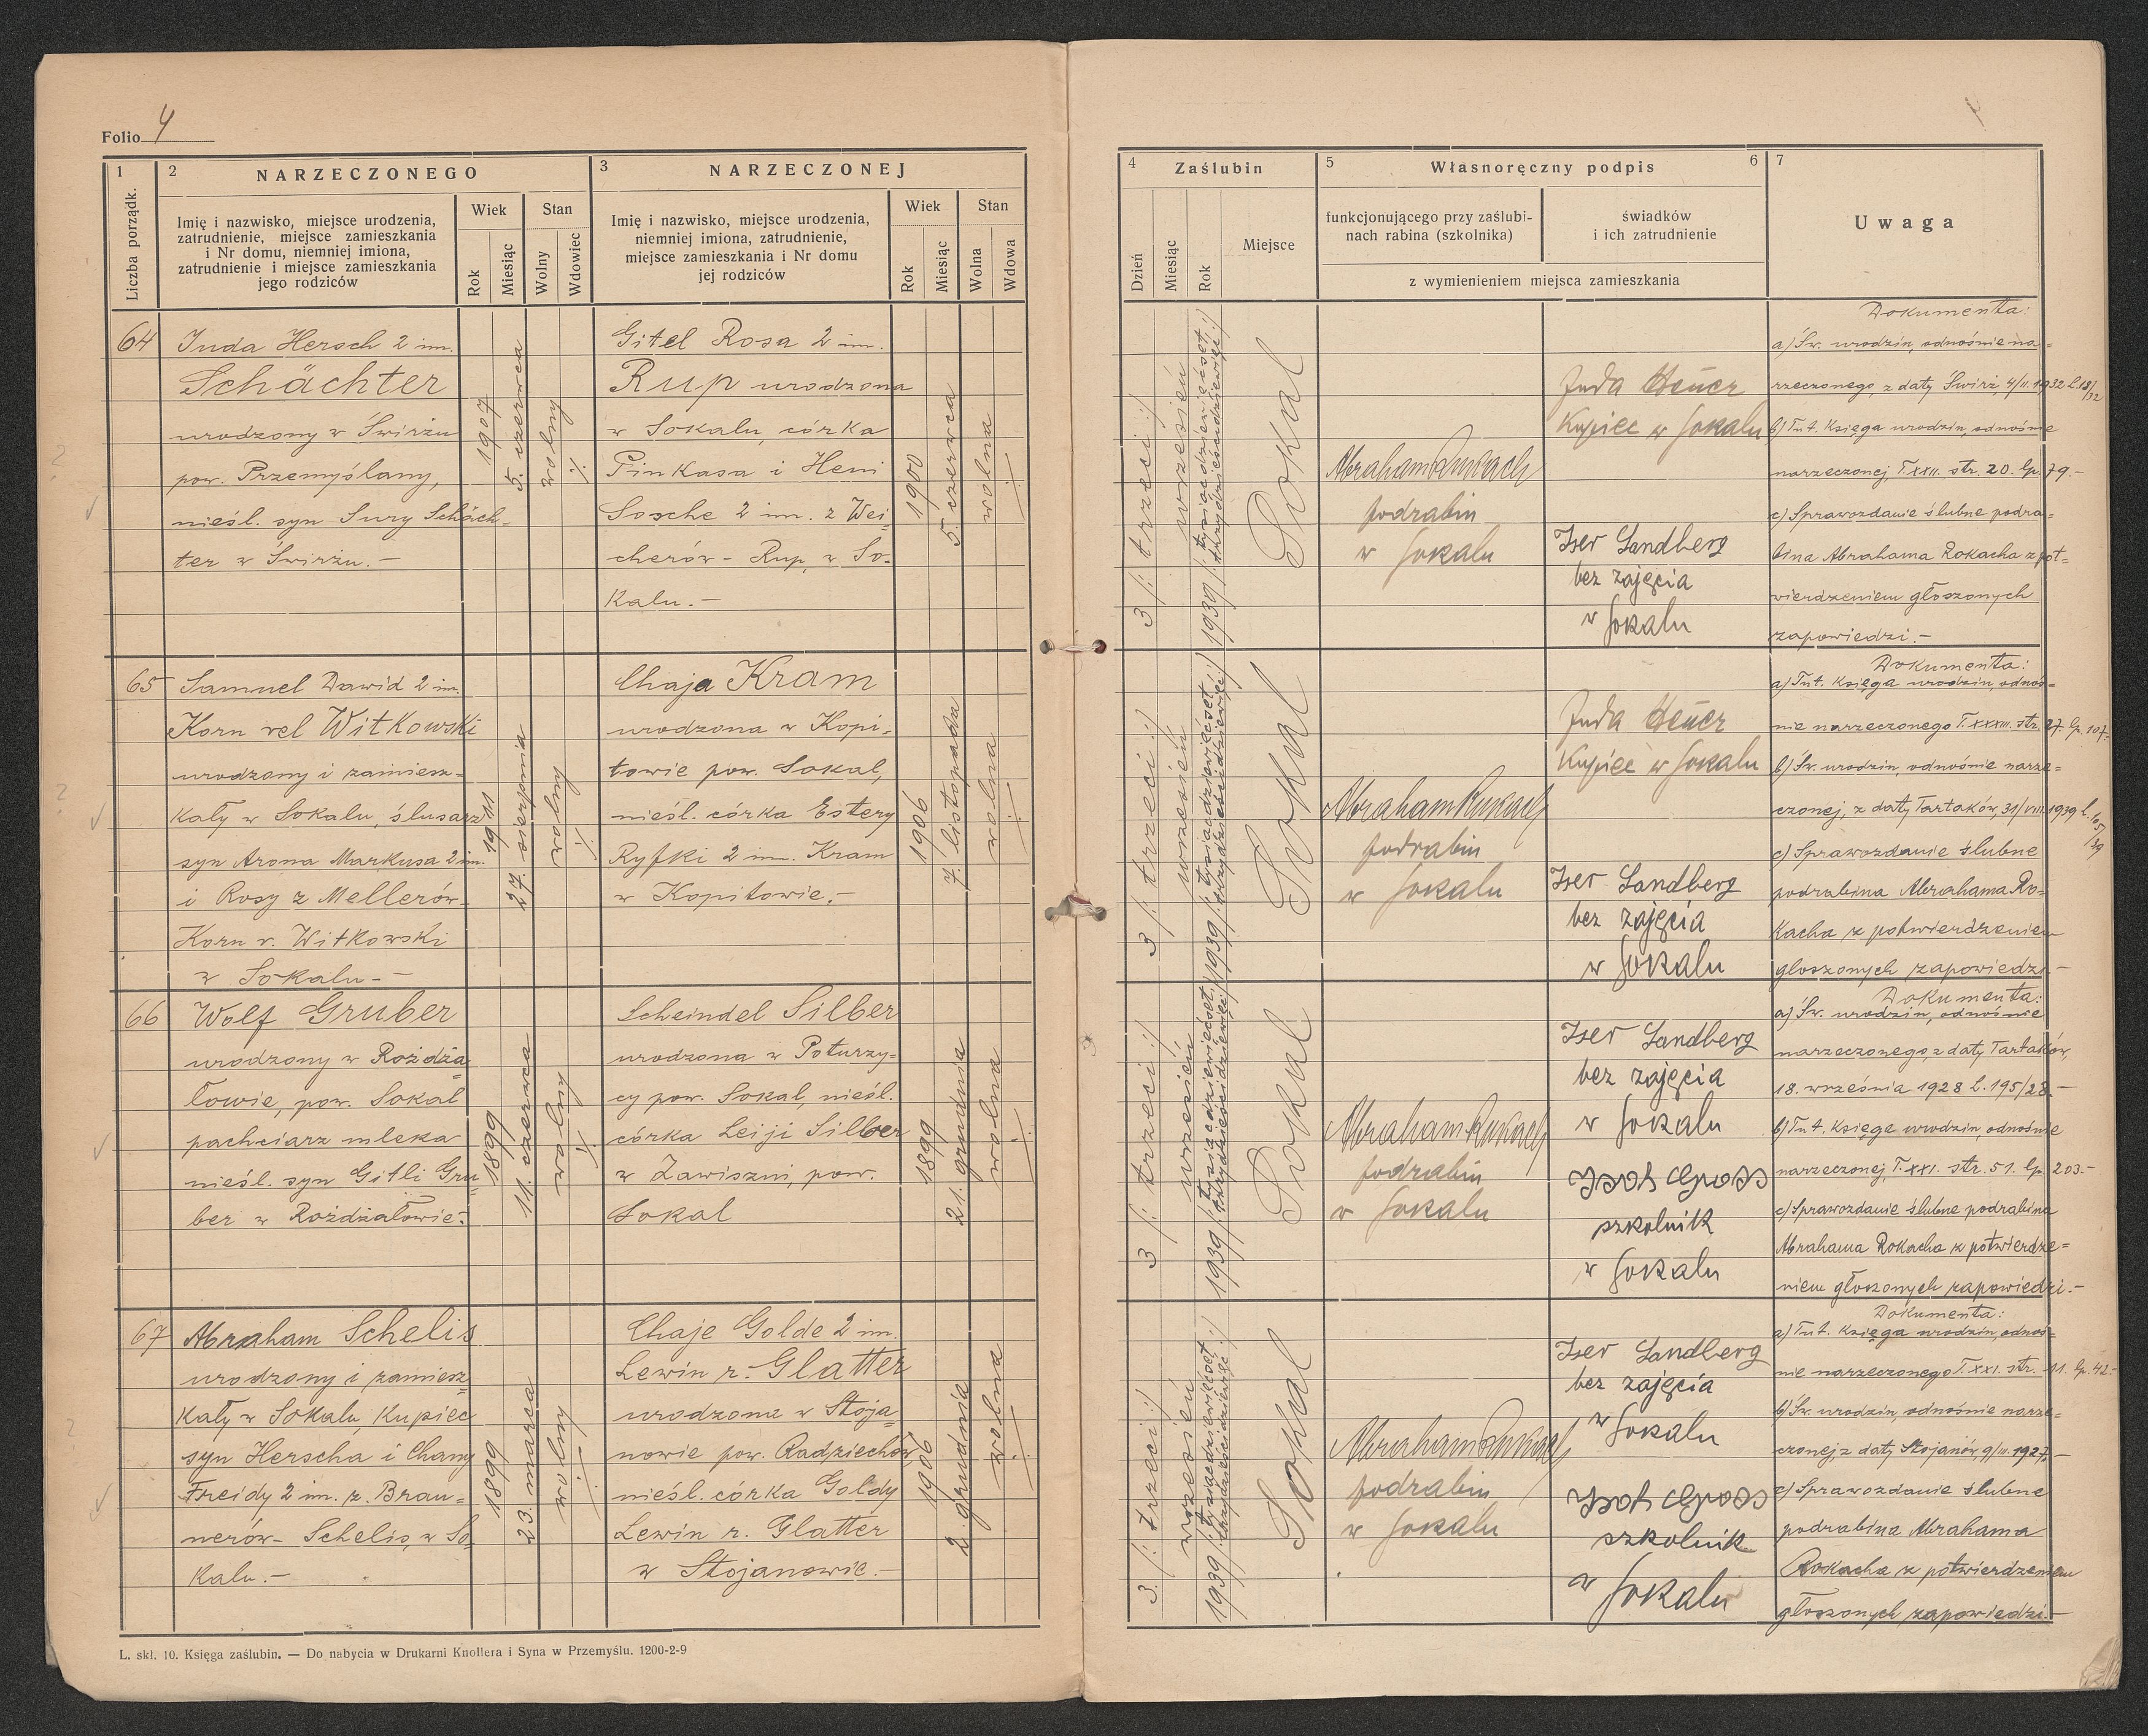 Folio 4
1
2
NARZECZONEGO
3
NARZECZONEJ
Liczba porządk.
Imię i nazwisko, miejsce urodzenia,
zatrudnienie, miejsce zamieszkania
i Nr domu, niemniej imiona,
zatrudnienie i miejsce zamieszkania
jego rodziców
Wiek
Stan
Rok
Miesiąc
Wolny
Wdowiec
Imię i nazwisko, miejsce urodzenia,
niemniej imiona, zatrudnienie,
miejsce zamieszkania i Nr domu
jej rodziców
Wiek
Stan
Rok
Miesiąc
Wolna
Wdowa
4
Zaślubin
5
Własnoręczny podpis
6
7
Dzień
Miesiąc
Rok
Miejsce
funkcjonującego przy zaślubi-
nach rabina (szkolnika)
świadków
i ich zatrudnienie
z wymienieniem miejsca zamieszkania
Uwaga
64
Juda Hersch 2 im.
Schächter
urodzony w Świrzu
pow. Przemyślany,
nieśl. syn Sury Schäch-
ter w Świrżu.—
1907
5. czerwca
wolny
Gitel Rosa 2 im.
Rup urodzona
w Sokalu, córka
Pinkasa i Heni
Sosche 2 im. z Wei-
cherów - Rup, w So-
kalu.—
1900
5. czerwca
wolna
3 /: trzeci :/
wrzesień
1939 /: tysiąc dziewięćset
trzydzieści dziewięć :/
Sokal
Abraham Rokach
podrabin
w Sokalu
Juda Heuer
Kupiec w Sokalu
Iser Sandberg
bez zajęcia
w Sokalu
Dokumenta:
a) Św. urodzin, odnośnie na-
rzeczonego, z daty Świrż, 4/II. 1932 l. 18/32
b) Tut. Księga urodzin, odnośnie
narzeczonej, T. XXII. str. 20. lp. 79.—
c) Sprawozdanie ślubne podra-
bina Abrahama Rokacha z pot-
wierdzeniem głoszonych
zapowiedzi.—
65
Samuel Dawid 2 im.
Korn vel Witkowski
urodzony i zamiesz-
kały w Sokalu, ślusarz
syn Arona Markusa 2 im.
i Rosy z Mellerów-
Korn v. Witkowski
w Sokalu.—
1911
27. sierpnia
wolny
Chaja Kram
urodzona w Kopi-
towie pow. Sokal,
nieśl. córka Estery
Ryfki 2 im. Kram
w Kopitowie.—
1906
7. listopada
wolna
3 /: trzeci :/
wrzesień
1939 /: tysiąc dziewięćset
trzydzieści dziewięć :/
Sokal
Abraham Rokach
podrabin
w Sokalu
Juda Heuer
Kupiec w Sokalu
Iser Sandberg
bez zajęcia
w Sokalu
Dokumenta:
a) Tut. Księga urodzin, odnoś-
nie narzeczonego T. XXXIII. str. 27. lp. 107.
b) Św. urodzin, odnośnie narze-
czonej, z daty Tartaków, 31/VIII. 1939 l. 105/39
c) Sprawozdanie ślubne
podrabina Abrahama Ro-
kacha z potwierdzeniem
głoszonych zapowiedzi.—
66
Wolf Gruber
urodzony w Rożdża
łowie, pow. Sokal
pachciarz mleka
nieśl. syn Gitli Gru-
ber w Rożdżałowie.
1899
11. czerwca
wolny
Scheindel Silber
urodzona w Poturzy-
cy pow. Sokal, nieśl.
córka Leiji Silber
w Zawiszni, pow.
Sokal
1899
21. grudnia
wolna
3 /: trzeci :/
wrzesień
1939 /: tysiąc dziewięćset
trzydzieści dziewięć :/
Sokal
Abraham Rokach
podrabin
w Sokalu
Iser Sandberg
bez zajęcia
w Sokalu
Gross
szkolnik
w Sokalu
Dokumenta:
a) Św. urodzin, odnośnie
narzeczonego, z daty Tartaków,
18. września 1928 l. 195/28.—
b) Tut. Księga urodzin, odnośnie
narzeczonej, T. XXI. str. 51. lp. 203.—
c) Sprawozdanie ślubne podrabina
Abrahama Rokacha z potwierdze-
niem głoszonych zapowiedzi.—
67
Abraham Schelis
urodzony i zamiesz-
kały w Sokalu, Kupiec
syn Herscha i Chany
Freidy 2 im. z. Brau-
nerów- Schelis, w So-
kalu.—
1899
23. marca
wolny
Chaje Golde 2 im.
Lewin r. Glatter
urodzona w Stoja-
nowie pow. Radziechów,
nieśl. córka Goldy
Lewin r. Glatter
w Stojanowie.—
1906
2. grudnia
wolna
3. /: trzeci :/
wrzesień
1939 /: tysiąc dziewięćset
trzydzieści dziewięć :/
Sokal
Abraham Rokach
podrabin
w Sokalu
Iser Sandberg
bez zajęcia
w Sokalu
Gross
szkolnik
w Sokalu
Dokumenta:
a) Tut. Księga urodzin, odnoś-
nie narzeczonego T. XXI. str. 11. lp. 42.—
b) Św. urodzin, odnośnie narze-
czonej, z daty Stojanów, 9/III. 1927.—
c) Sprawozdanie ślubne
podrabina Abrahama
Rokacha z potwierdzeniem
głoszonych zapowiedzi.—
L. skł. 10. Księga zaślubin. — Do nabycia w Drukarni Knollera i Syna w Przemyślu. 1200-2-9